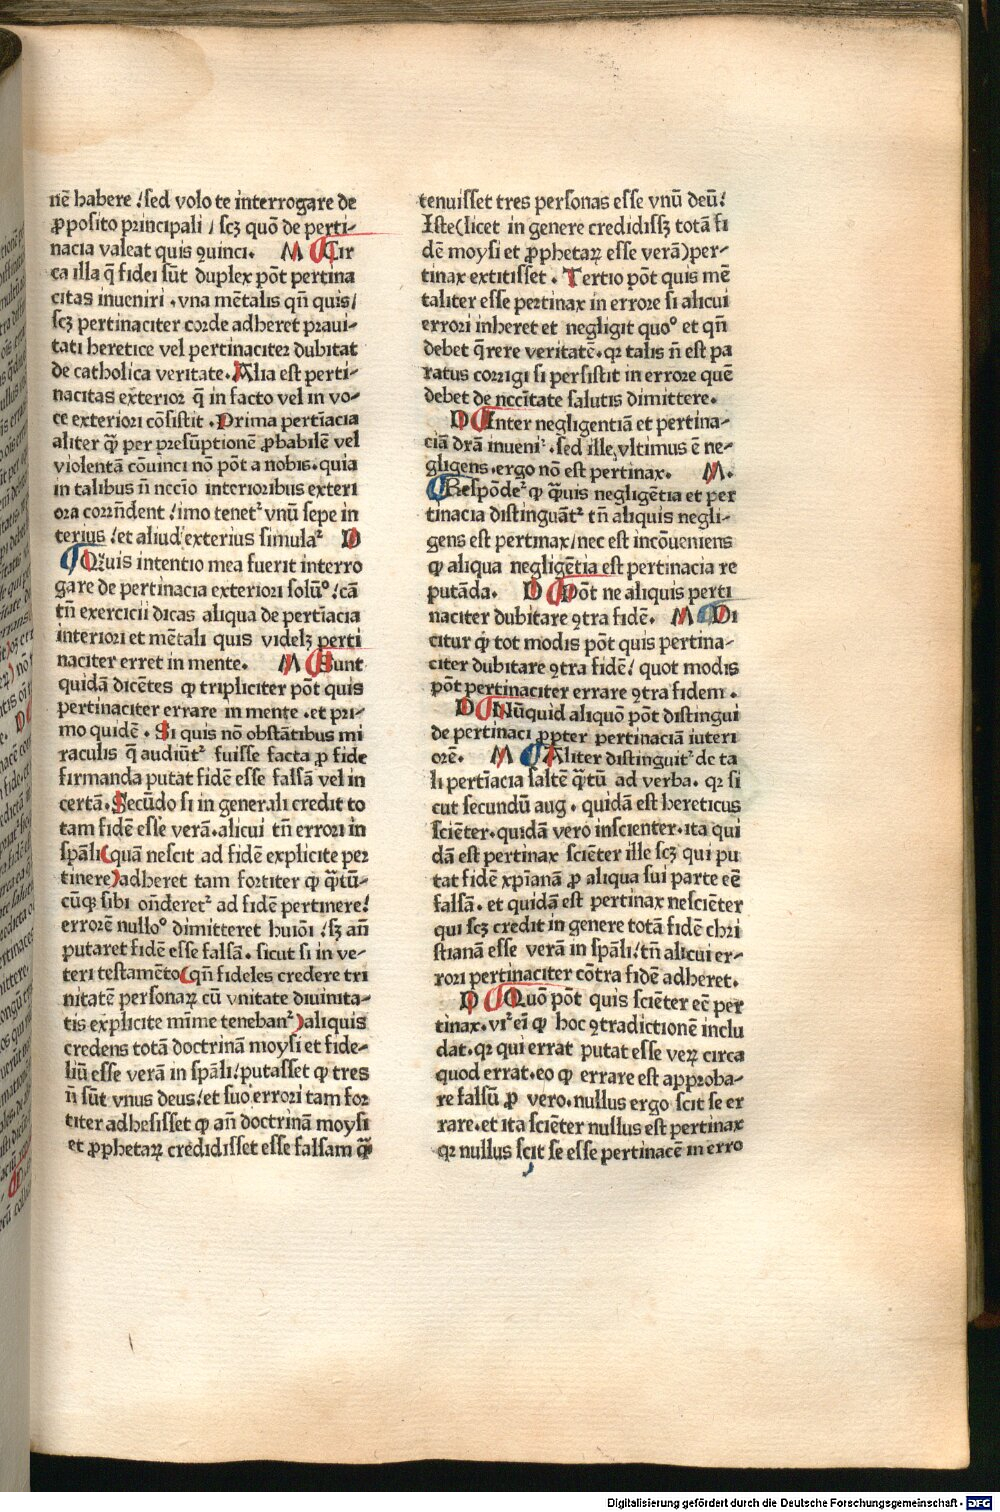 nē habere / sed volo te interrogare de
ꝓposito principali / scꝫ quō de perti-
nacia valeat quis ꝯuinci. M ¶ Cir
ca illa q̄ fidei sūt duplex pōt pertina
citas inueniri . vna mētalis qn̄ quis /
scꝫ pertinaciter corde adheret praui-
tati heretice vel pertinaciter dubitat
de catholica veritate. Alia est perti-
nacitas exterior q̄ in facto vel in vo-
ce exteriori cōsistit . Prima pertīacia
aliter q̄ꝫ per presūptionē ꝓbabilē vel
violentā cōuinci nō pōt a nobis. quia
in talibus n̄ nccīo interioribus exteri
ora corrn̄dent / imo tenetᷣ vnū sepe in
terius / et aliud exterius simulaᷣ D
¶ Qꝫuis intentio mea fuerit interro
gare de pertinacia exteriori solū° / cā
tn̄ exercicii dicas aliqua de pertīacia
interiori et mētali quis videlꝫ perti
naciter erret in mente. M ¶ Sunt
quidā dicētes ꝙ tripliciter pōt quis
pertinaciter errare in mente . et pri-
mo quidē . Si quis nō obstātibus mi
raculis q̄ audiūtᷣ fuisse facta ꝓ fide
firmanda putat fidē esse falsā vel in
certā. Secūdo si in generali credit to
tam fidē esse verā. alicui tn̄ errori in
spāli (quā nescit ad fidē explicite per
tinere) adheret tam fortiter ꝙ q̄ꝫtū-
cūqꝫ sibi on̄deretᷣ ad fidē pertinere /
errorē nullo° dimitteret huiōi / sꝫ an̄
putaret fidē esse falsā . sicut si in ve-
teri testamēto (qn̄ fideles credere tri
nitatē personaꝝ cū vnitate diuinita-
tis explicite mīme tenebanᷣ) aliquis
credens totā doctrinā moysi et fide-
liū esse verā in spāli / putasset ꝙ tres
n̄ sūt vnus deus / et suo errori tam for
titer adhesisset ꝙ an̄ doctrinā moysi
et ꝓphetaꝝ credidisset esse falsam q̄ꝫ
tenuisset tres personas esse vnū deū /
Iste (licet in genere credidissꝫ totā fi
dē moysi et ꝓphetaꝝ esse verā) per-
tinax extitisset . Tertio pōt quis mē
taliter esse pertinax in errore si alicui
errori inheret et negligit quo° et qn̄
debet q̄rere veritatē. qꝛ talis n̄ est pa
ratus corrigi si persistit in errore quē
debet de nccītate salutis dimittere.
D ¶ Inter negligentiā et pertina-
ciā drā inueniᷣ . sed ille vltimus ē ne-
gligens . ergo nō est pertinax. M.
¶ Respōdeᷣ ꝙ q̄ꝫuis negligētia et per
tinacia distinguātᷣ tn̄ aliquis negli-
gens est pertinax / nec est incōueniens
ꝙ aliqua negligētia est pertinacia re
putāda. D ¶ Pōt ne aliquis perti
naciter dubitare ꝯtra fidē. M ¶ Di
citur ꝙ tot modis pōt quis pertina-
citer dubitare ꝯtra fidē / quot modis
pōt pertinaciter errare ꝯtra fidem .
D ¶ Nūquid aliquō pōt distingui
de pertinaci ꝓpter pertinaciā interi
orē. M ¶ Aliter distinguitᷣ de ta
li pertīacia saltē q̄ꝫtū ad verba. qꝛ si
cut secundū aug . quidā est hereticus
sciēter. quidā vero inscienter. ita qui
dā est pertinax sciēter ille scꝫ qui pu
tat fidē xp̄ianā ꝓ aliqua sui parte eē
falsā. et quidā est pertinax nesciēter
qui scꝫ credit in genere totā fidē chri
stianā esse verā in spāli / tn̄ alicui er-
rori pertinaciter cōtra fidē adheret.
D ¶ Quō pōt quis sciēter eē per
tinax. viᷣ ei̅ ꝙ hoc ꝯtradictionē inclu
dat. qꝛ qui errat putat esse veꝝ circa
quod errat. eo ꝙ errare est approba-
re falsū ꝓ vero. nullus ergo scit se er
rare. et ita sciēter nullus est pertinax
qꝛ nullus scit se esse pertinacē in erro
Digitalisierung gefördert durch die Deutsche Forschungsgemeinschaft - DFG